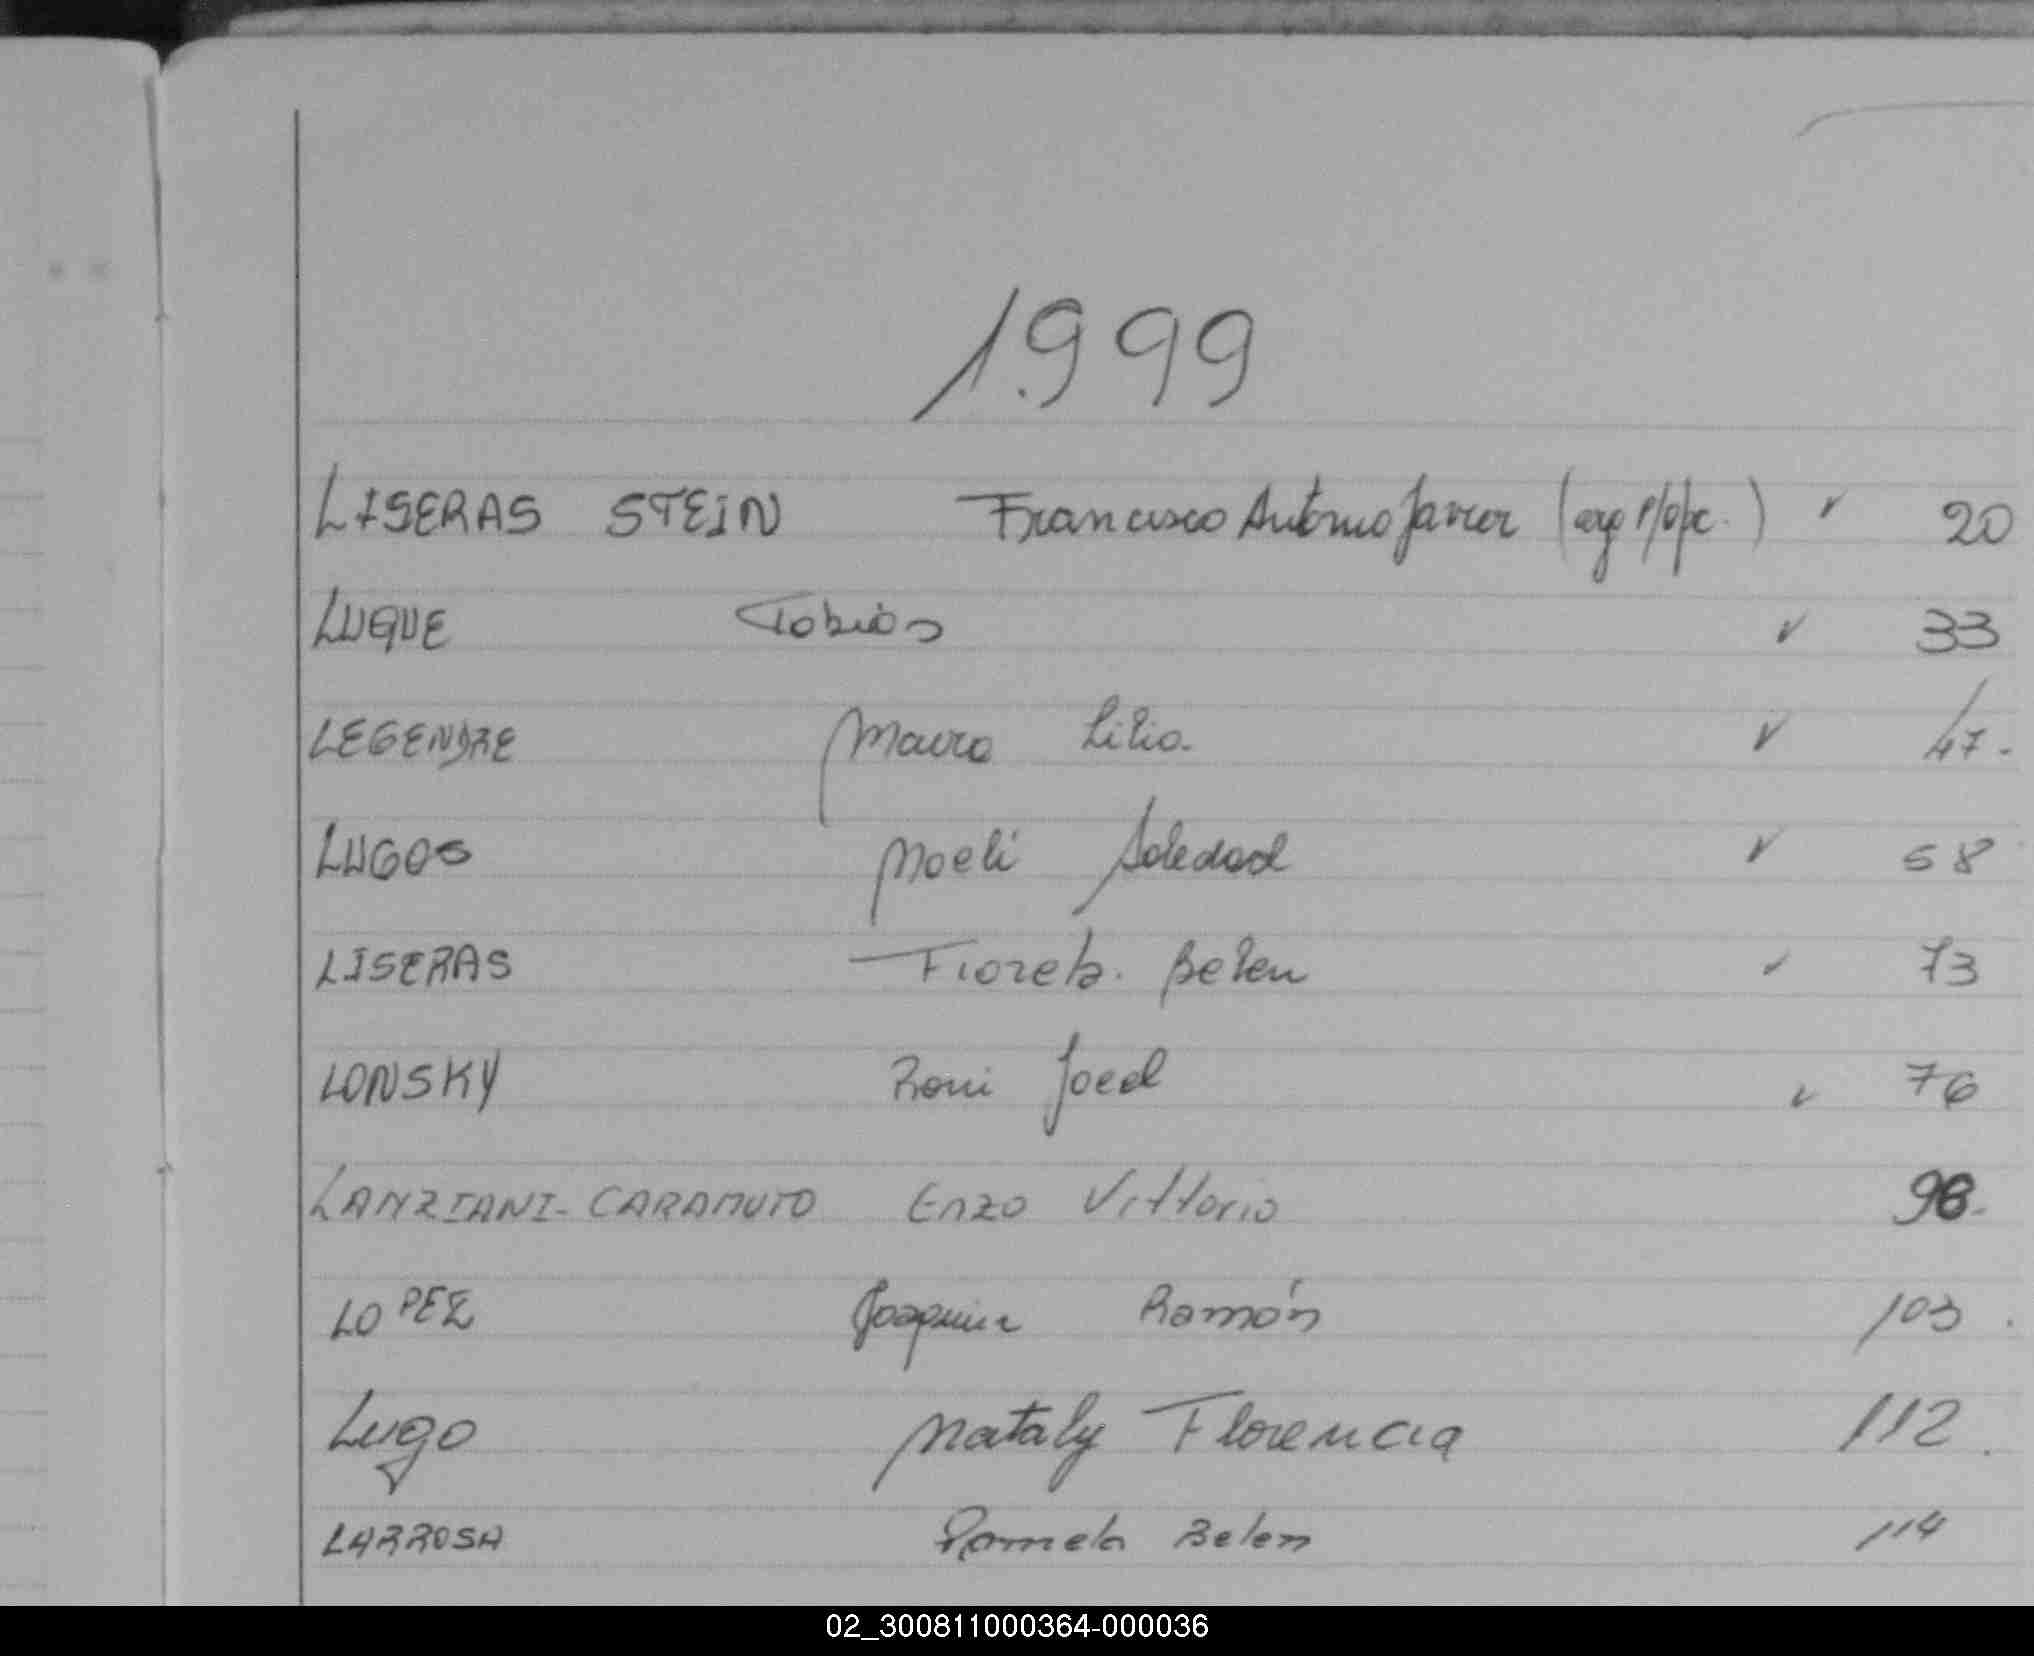 1.999
LISERAS STEIN Francisco Antonio Javier (arg p/opc.) ✓ 20
LUQUE Tobias ✓ 33
LEGENDRE Maura Lilia ✓ 47.
LUGOS Noeli Soledad ✓ 58
LISERAS Fiorela Belen ✓ 73
LONSKY Roni Joed ✓ 76
LANZIANI-CARAMUTO Enzo Vittorio 98.
LOPEZ Joaquin Ramón 103.
Lugo Nataly Florencia 112.
LARROSA Pamela Belen 114
02_300811000364-000036